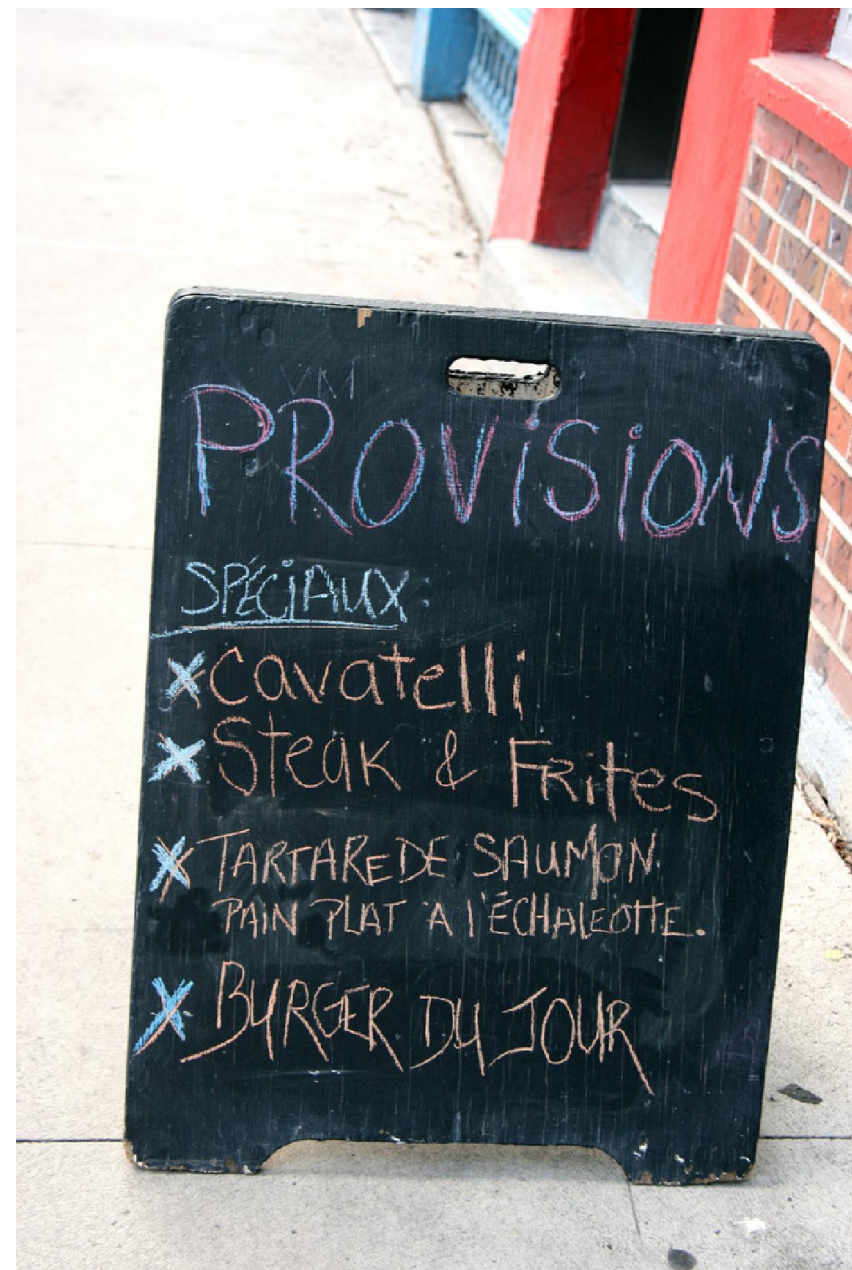 PROViSiONS
SPÉCiAUX:
x Cavatelli
x Steak & FRites
x TARTARE DE SAUMON
PAIN PLAT À l'ÉCHALEOTTE.
x BURGER DU JOUR